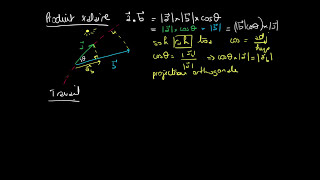 Produit scalaire
a⃗.b⃗ = |a⃗|×|b⃗|×cosθ
= |a⃗|×cosθ×|b⃗| = (|a⃗|cosθ)×|b⃗|
soh cah toa cos = adj/hyp
cosθ = |a⃗b|/|a⃗| ⇒ cosθ×|a⃗| = |a⃗b|
projection orthogonale
a⃗
θ
a⃗b
b⃗
Travail